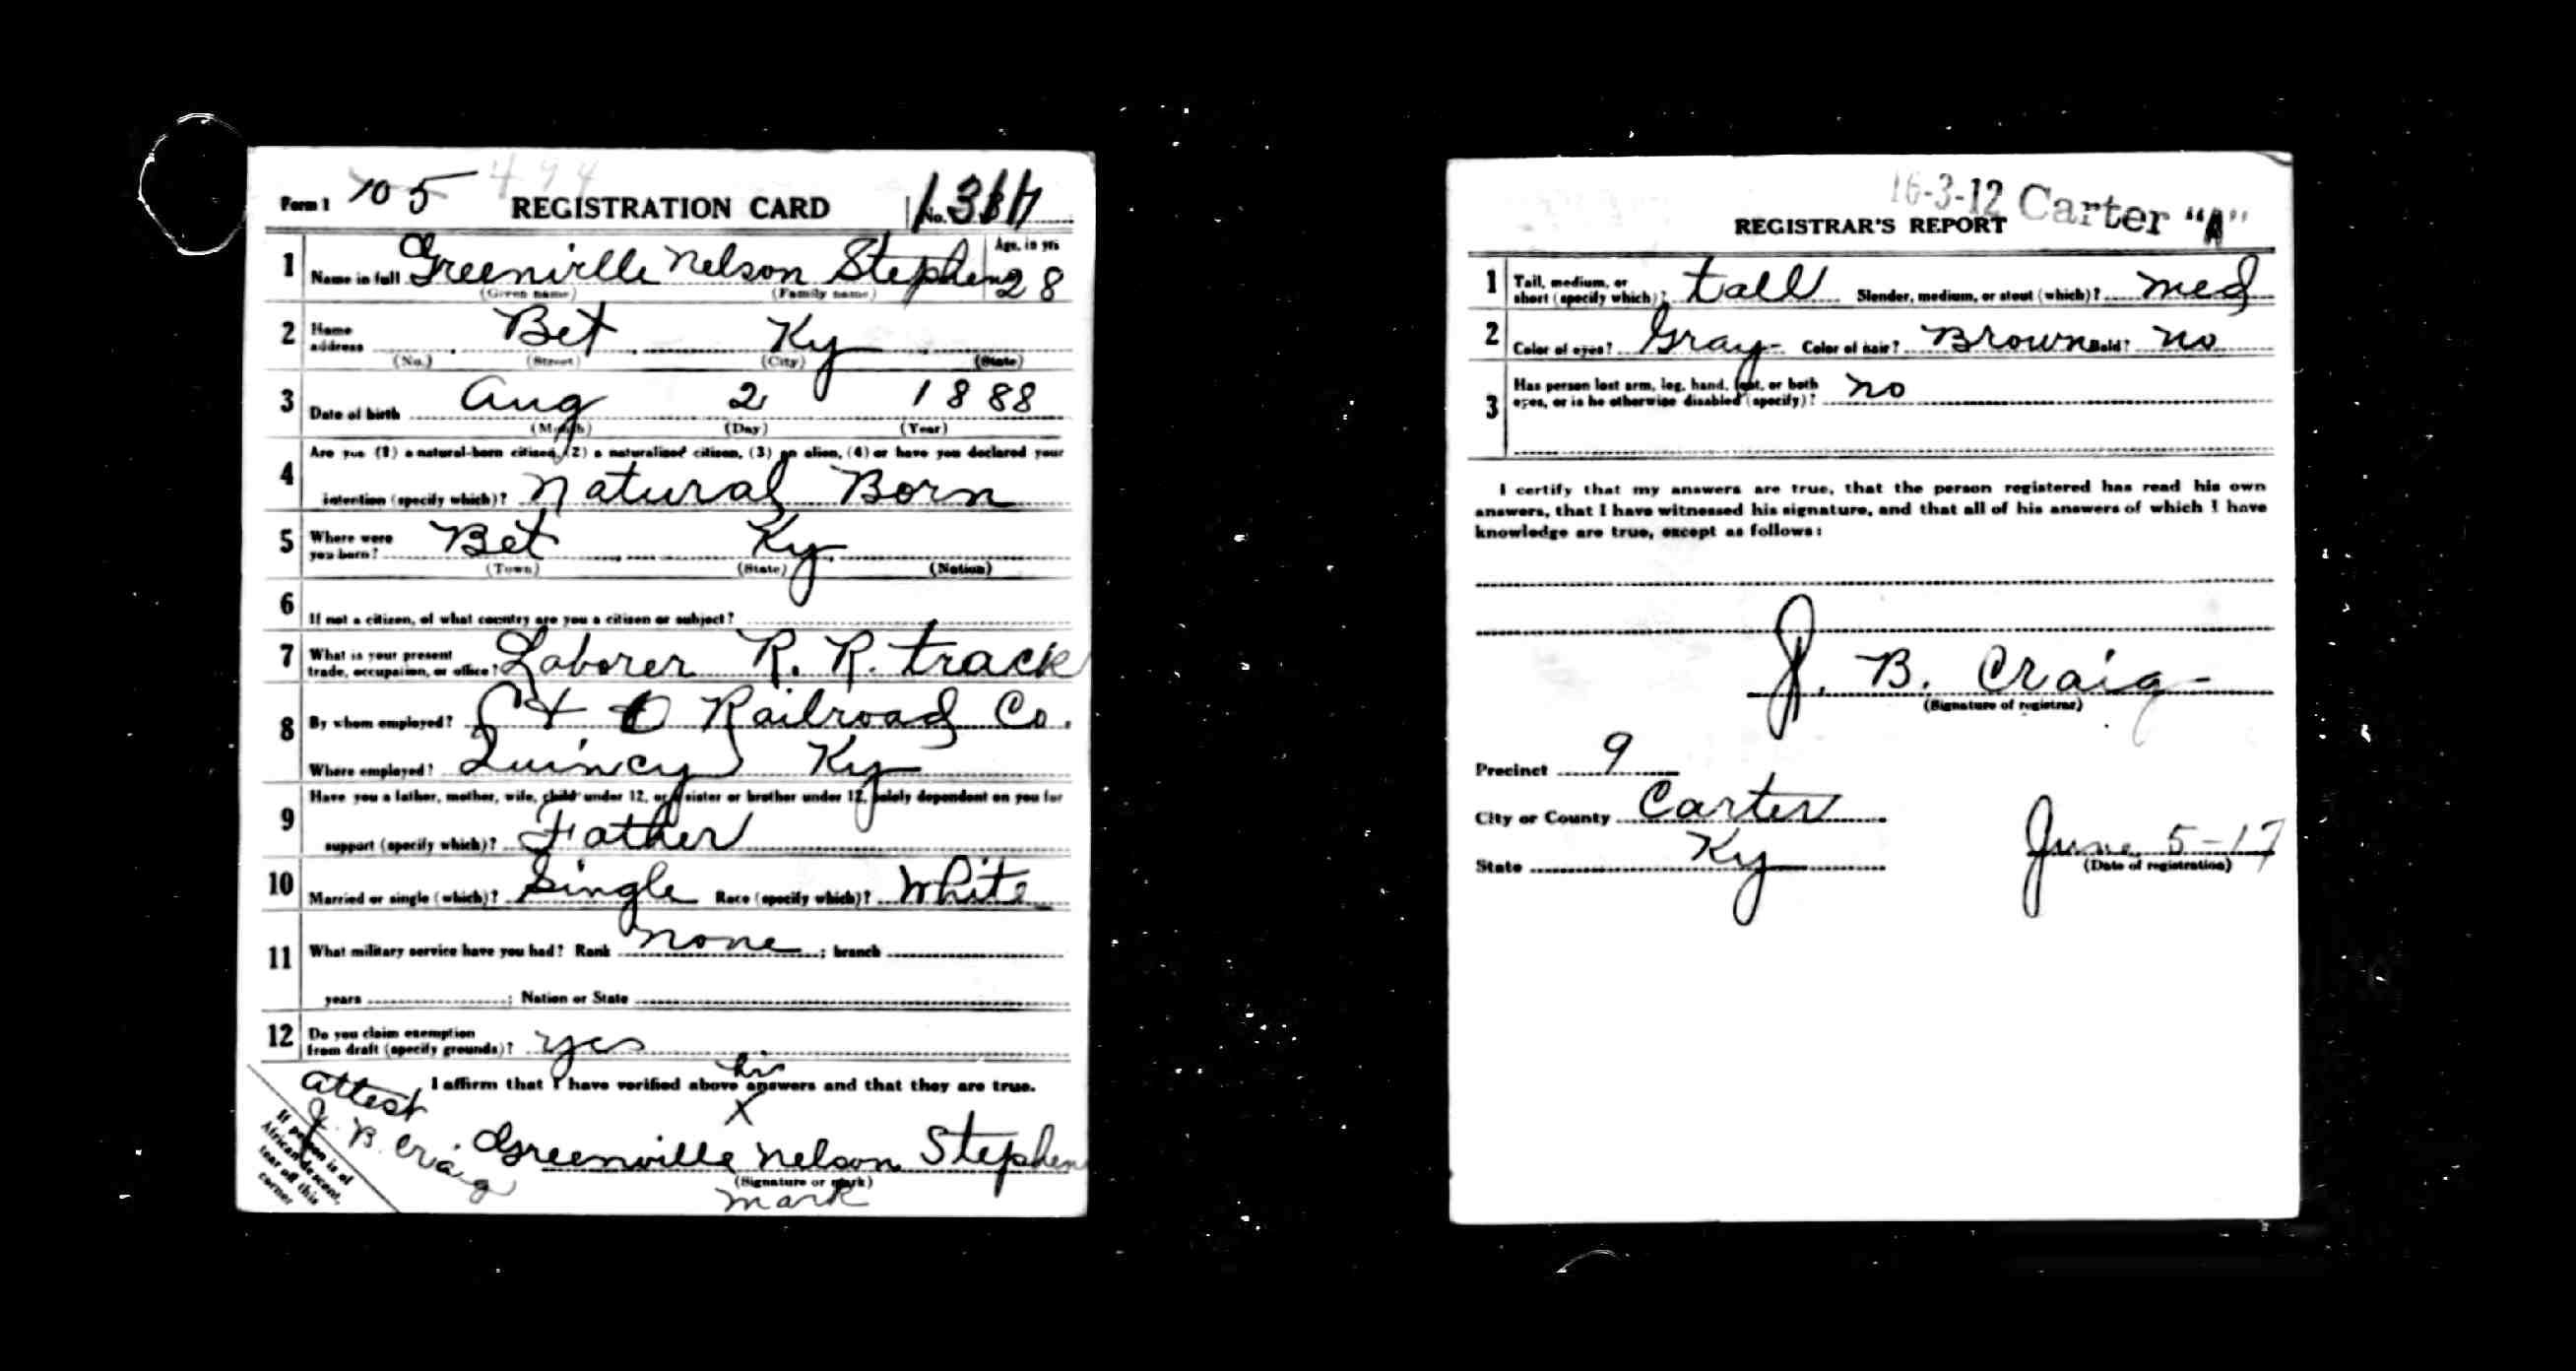 Form 1 105 494 REGISTRATION CARD No.
1 Name in full Greenville Nelson Stephens Age, in yrs 28
(Given name) (Family name)
2 Home address Bet Ky
(No.) (Street) (City) (State)
3 Date of birth Aug 2 1888
(Month) (Day) (Year)
4 Are you (1) a natural-born citizen, (2) a naturalized citizen, (3) an alien, (4) or have you declared your
intention (specify which)? Natural Born
5 Where were you born? Bet Ky
(Town) (State) (Nation)
6 If not a citizen, of what country are you a citizen or subject?
7 What is your present trade, occupation, or office? Laborer R. R. track
8 By whom employed? C & O Railroad Co.
Where employed? Quincy Ky
9 Have you a father, mother, wife, child under 12, or a sister or brother under 12, solely dependent on you for
support (specify which)? Father
10 Married or single (which)? Single Race (specify which)? White
11 What military service have you had? Rank none ; branch
years ; Nation or State
12 Do you claim exemption from draft (specify grounds)? yes
I affirm that I have verified above answers and that they are true.
his
X
Greenville Nelson Stephens
(Signature or mark)
mark
attest
J. B. Craig
If person is of
African descent,
tear off this
corner
16-3-12 Carter "A"
REGISTRAR'S REPORT
1 Tall, medium, or short (specify which)? tall Slender, medium, or stout (which)? med
2 Color of eyes? Gray Color of hair? Brown Bald? no
3 Has person lost arm, leg, hand, foot, or both
eyes, or is he otherwise disabled (specify)? no
I certify that my answers are true, that the person registered has read his own
answers, that I have witnessed his signature, and that all of his answers of which I have
knowledge are true, except as follows:
J. B. Craig
(Signature of registrar)
Precinct 9
City or County Carter
State Ky
June 5-17
(Date of registration)